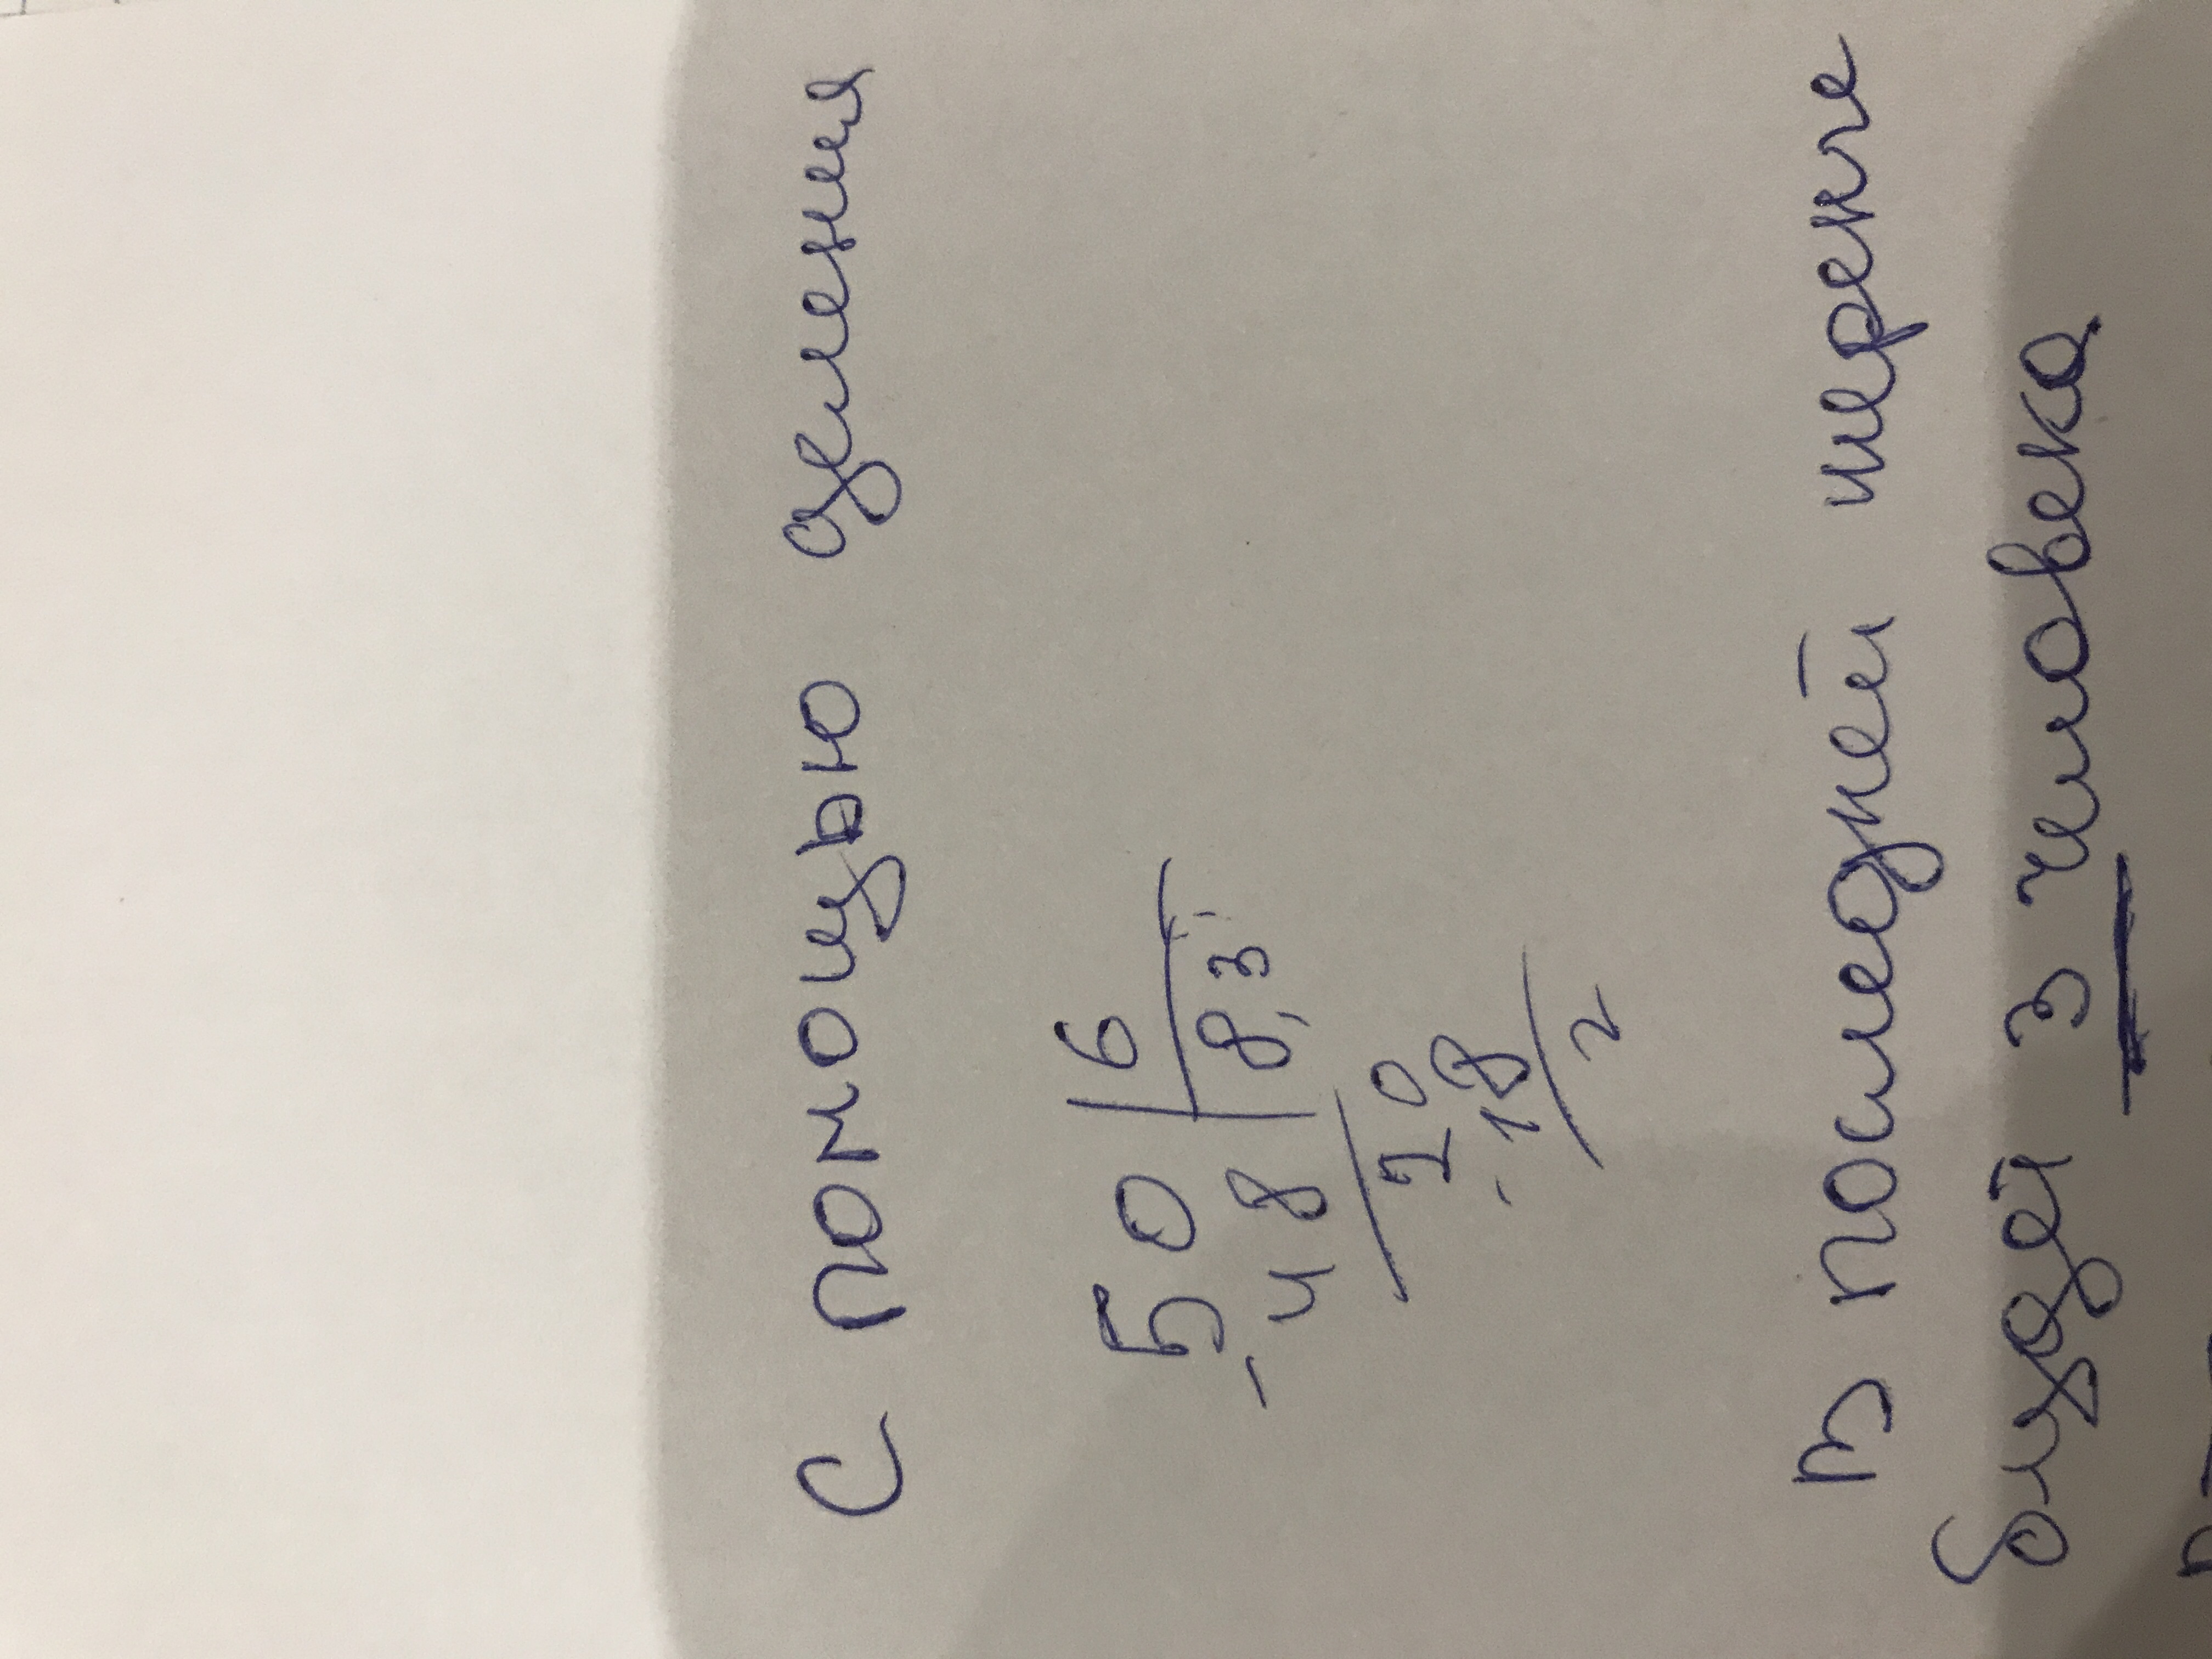 С помощью деления
50 | 6
- 48 | 8,3
20
- 18
2
В последней шеренге
будет 3 человека